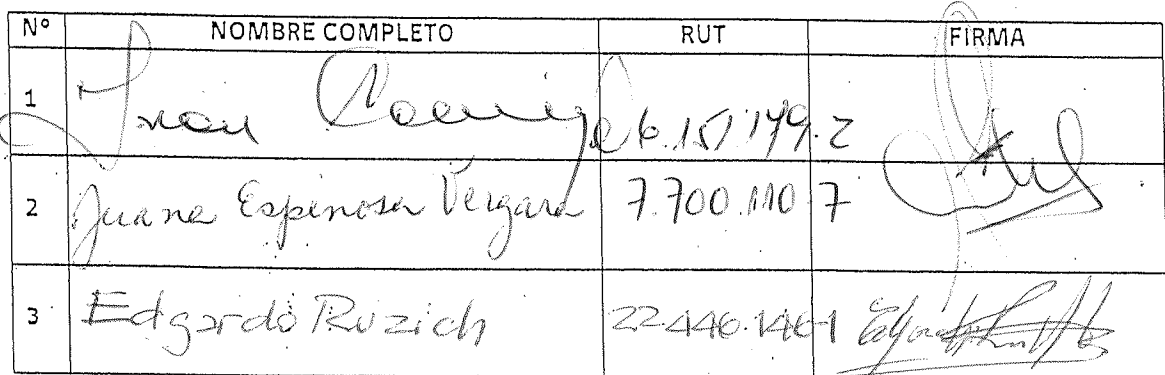 Nº NOMBRE COMPLETO RUT FIRMA
1 6.151.149-2
2 Juana Espinosa Vergara 7.700.110-7
3 Edgardo Ruzich 22.446.146-1